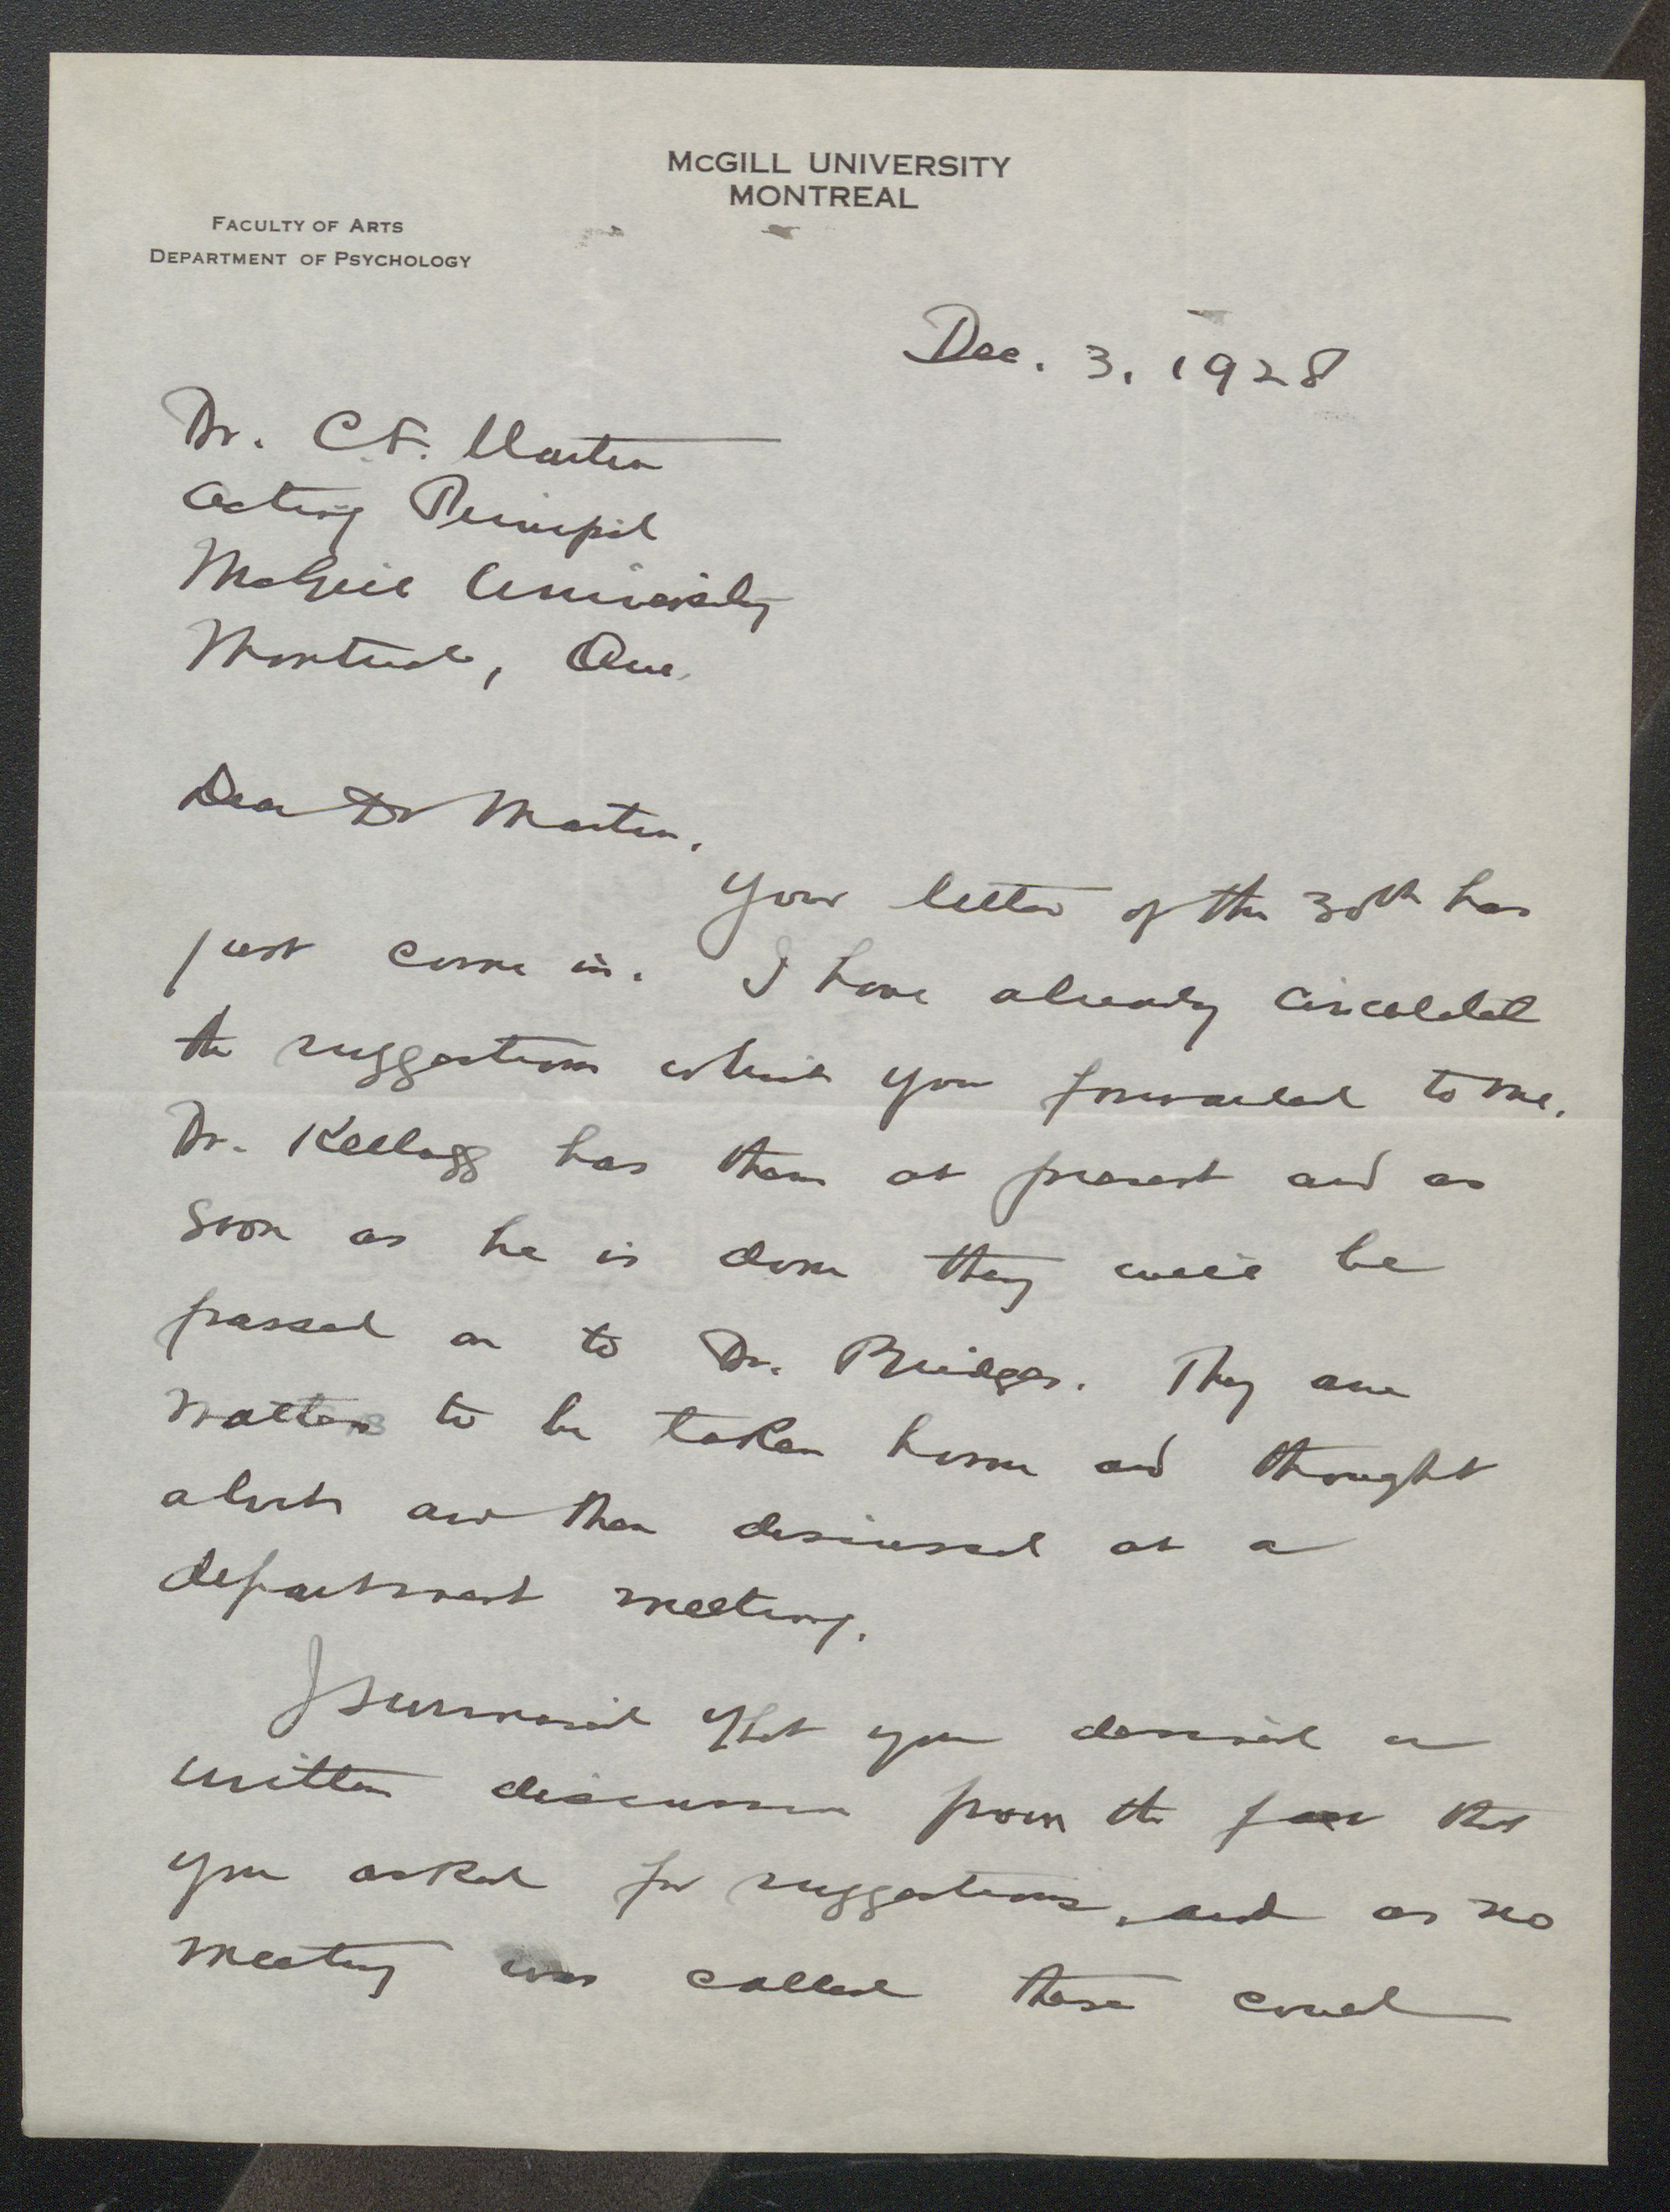 McGILL UNIVERSITY
MONTREAL
FACULTY OF ARTS
DEPARTMENT OF PSYCHOLOGY
Dec. 3, 1928
Dr. C.F. Martin
Acting Principal
McGill University
Montreal, Que.
Dear Dr Martin,
Your letter of the 30th has
just come in. I have already circulated
the suggestions which you forwarded to me.
Dr. Kellogg has them at present and as
soon as he is done they will be
passed on to Dr. Bridges. They are
matters to be taken home and thought
about and then discussed at a
department meeting.
I surmised that you desired a
written discussion from the fact that
you asked for suggestions, and as no
meeting was called these could